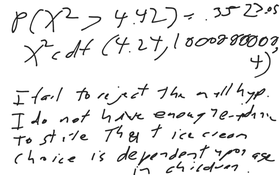 P(X² > 4.42) = .352305
X²cdf (4.24, 1000000000,
4)
I fail to reject the null hyp.
I do not have enough
to state that ice cream
choice is dependent upon age
in children.